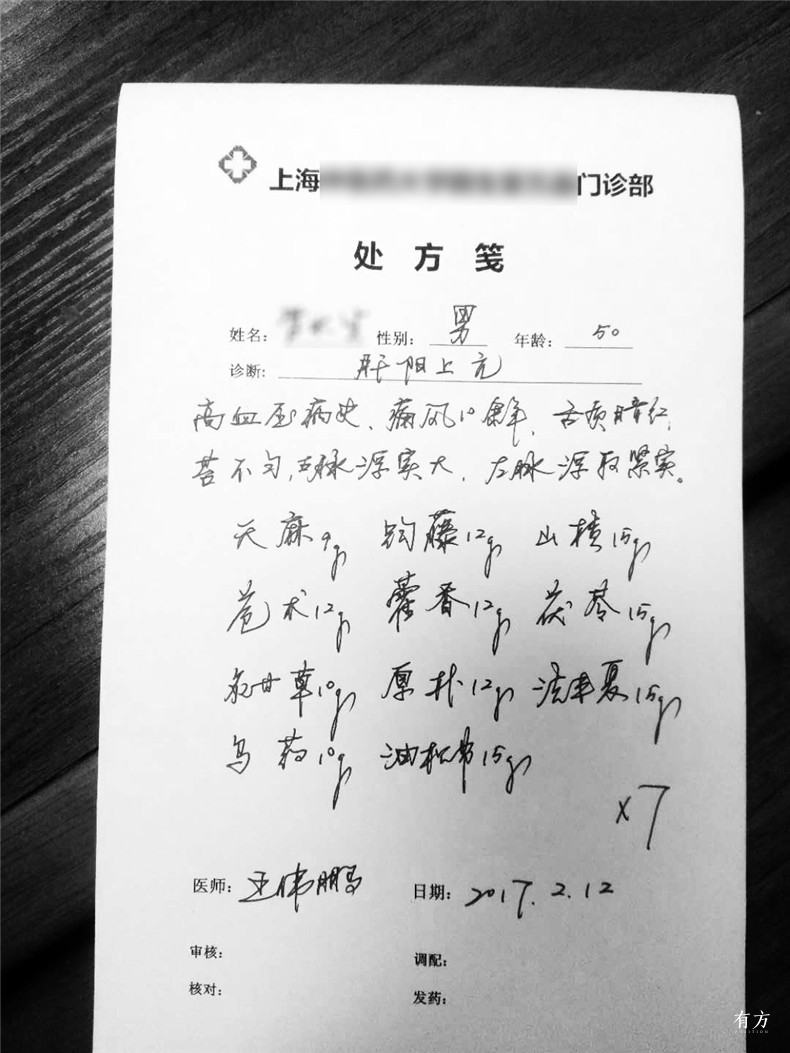 上海 门诊部
处方笺
姓名: 性别: 男 年龄: 50
诊断: 肝阳上亢
高血压病史、痛风10余年、舌质暗红,
苔不匀,右脉浮实大,左脉浮取紧实。
天麻9g 钩藤12g 山楂15g
苍术12g 藿香12g 茯苓15g
炙甘草10g 厚朴12g 法半夏15g
乌药10g 油松节15g
×7
医师: 王伟鹏 日期: 2017.2.12
审核: 调配:
核对: 发药:
有方